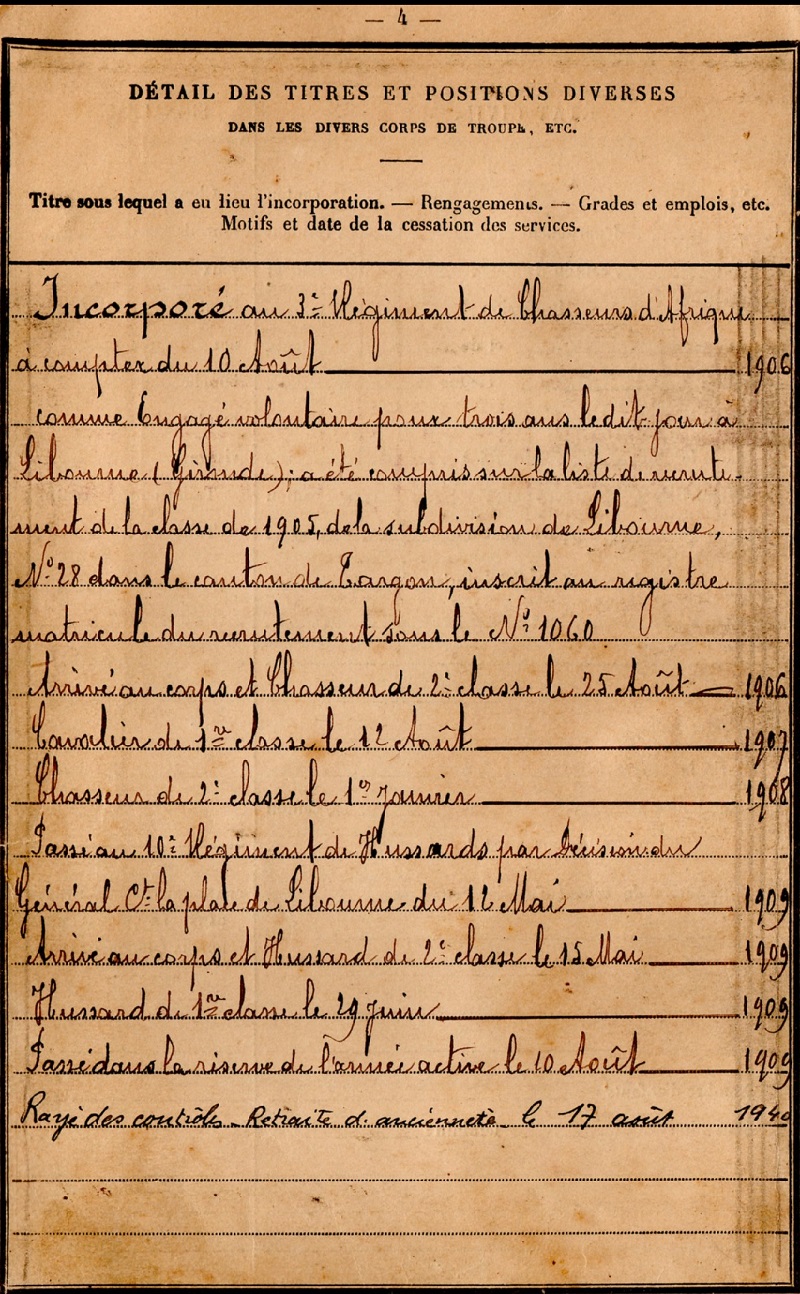 — 4 —
DÉTAIL DES TITRES ET POSITIONS DIVERSES
DANS LES DIVERS CORPS DE TROUPE, ETC.
Titre sous lequel a eu lieu l'incorporation. — Rengagements. — Grades et emplois, etc.
Motifs et date de la cessation des services.
Incorporé au 3e Régiment de Chasseurs d'Afrique
à compter du 10 Août 1906
comme Engagé volontaire pour trois ans le dit jour à
Libourne (Gironde); a été compris sur la liste de recrute-
ment de la classe de 1905, de la subdivision de Libourne,
No 28 dans le canton de Targon, inscrit au registre
matricule du recrutement sous le No 1060
Arrivé au corps et Chasseur de 2e classe le 25 Août 1906
Cavalier de 1re classe le 12 Août 1907
Chasseur de 2e classe le 1er Janvier 1908
Passé au 10e Régiment de Hussards par Décision du
Général Ct la place de Libourne du 12 Mai 1909
Arrivé au corps et Hussard de 2e classe le 15 Mai 1909
Hussard de 1re classe le 29 Juin 1909
Passé dans la réserve de l'armée active le 10 Août 1909
Rayé des contrôles. Retraite d'ancienneté le 17 août 1940